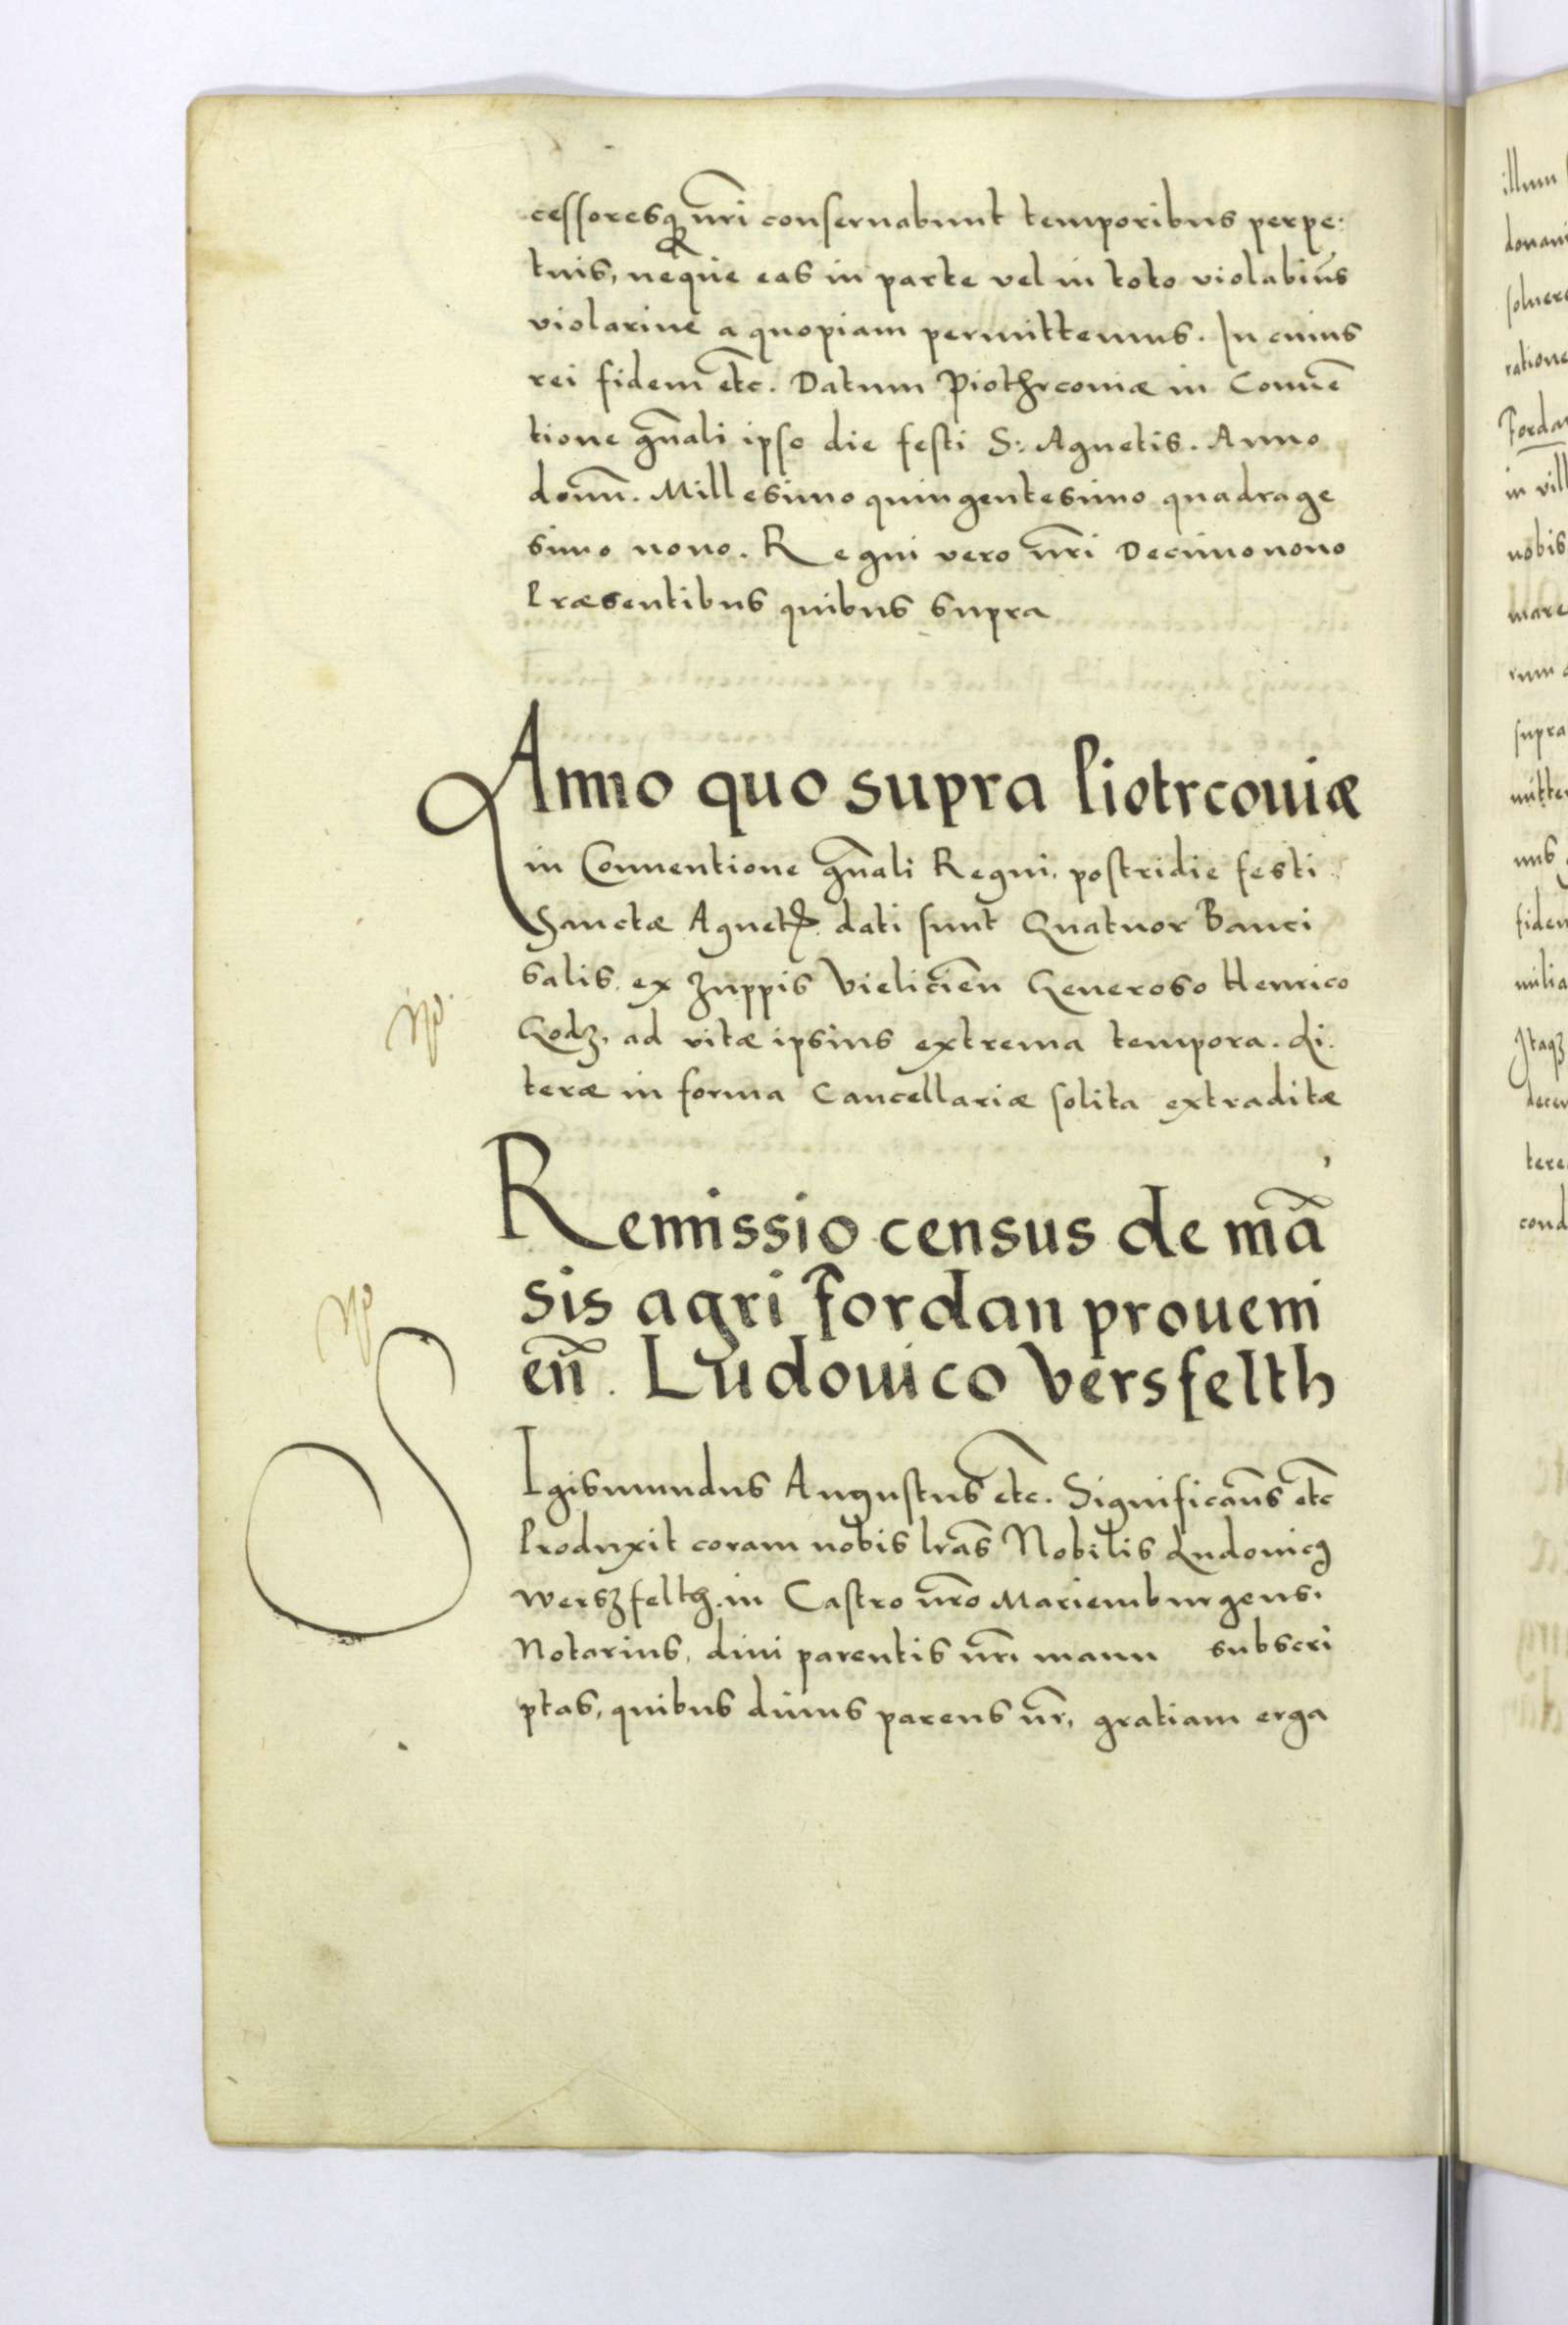 cessoresq; nr̃i conseruabunt temporibus perpe:
tuis, neque eas in parte vel in toto violabim̃s
violariue a quopiam permittemus. In cuius
rei fidem etc̃. Datum Piothrcoviæ in Conuẽ
tione gñali ipso die festi S: Agnetis. Anno
dom̃. Millesimo quingentesimo quadrage
simo nono. Regni vero nr̃i Decimonono
Præsentibus quibus supra
Anno quo supra Piotrcouiæ
in Conuentione gñali Regni, postridie festi
Sanctæ Agnetꝭ dati sunt Quatuor Banci
salis, ex Zuppis Vieliciẽn Generoso Henrico
Godz, ad vitæ ipsius extrema tempora. Li:
teræ in forma Cancellariæ solita extraditæ
Remissio census de mã
sis agri Fordan proueni
eñ. Ludouico Versfelth
SIgismundus Augustus etc̃. Significam̃s etc̃
Produxit coram nobis lr̃as Nobilis Ludouicꝯ
Werszfelth in Castro nr̃o Mariemburgens.
Notarius, diui parentis nr̃i manu subscri
ptas, quibus diuus parens nr̃, gratiam erga
illum
donaui
soluere
ratione
Fordan
in vill
nobis
mare
rum
supra
mitte
mus
fidem
milia
Itaqz
decer
tere
cond